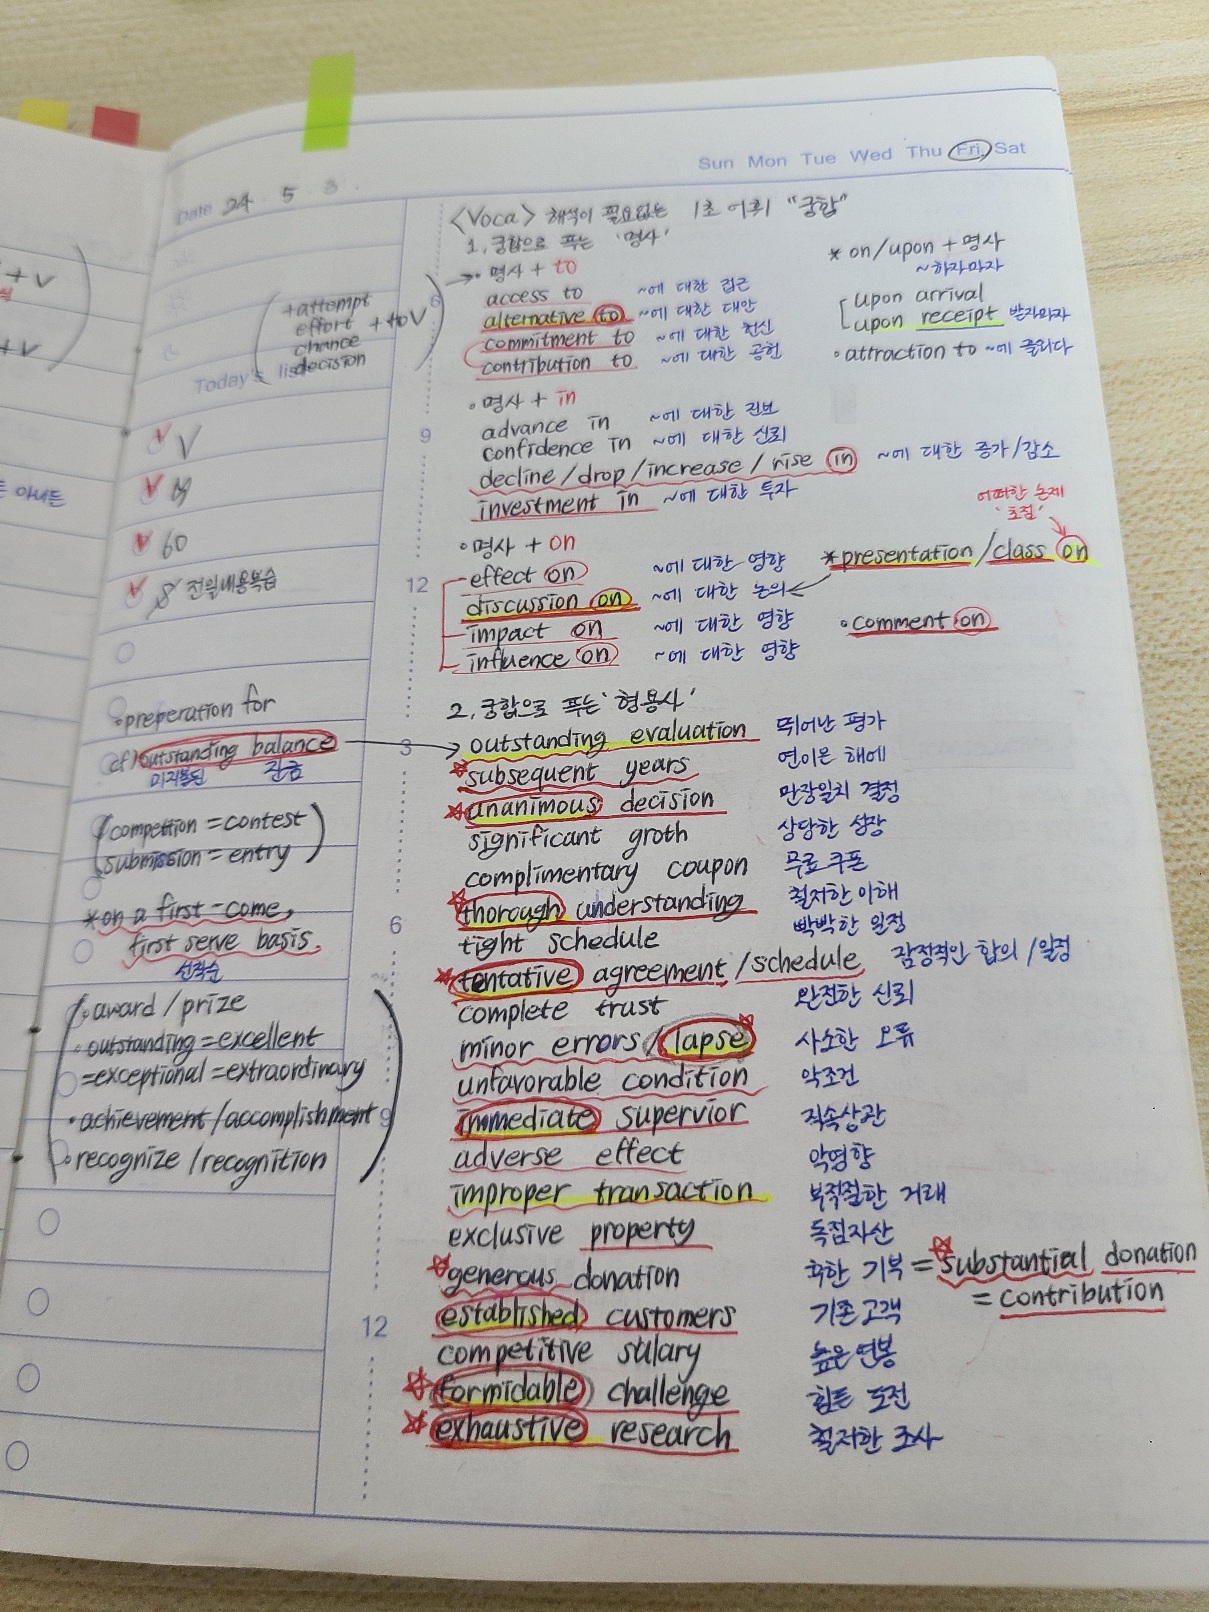 Sun Mon Tue Wed Thu Fri. Sat
Date 24. 5. 3.
<Voca> 해석이 필요없는 1초 어휘 "궁합"
1. 궁합으로 푸는 '명사'
• 명사 + to
access to ~에 대한 접근
alternative to ~에 대한 대안
commitment to ~에 대한 헌신
contribution to ~에 대한 공헌
* on/upon + 명사
~하자마자
upon arrival
upon receipt 받자마자
• attraction to ~에 끌리다
+attempt
effort + to V
chance
decision
Today's list
• 명사 + in
advance in ~에 대한 진보
confidence in ~에 대한 신뢰
decline/drop/increase/rise in ~에 대한 증가/감소
investment in ~에 대한 투자
• 명사 + on
effect on ~에 대한 영향
discussion on ~에 대한 논의
impact on ~에 대한 영향
influence on ~에 대한 영향
어떠한 논제
'초점'
*presentation/class on
• comment on
2. 궁합으로 푸는 '형용사'
outstanding evaluation 뛰어난 평가
subsequent years 연이은 해에
unanimous decision 만장일치 결정
significant groth 상당한 성장
complimentary coupon 무료 쿠폰
thorough understanding 철저한 이해
tight schedule 빡빡한 일정
tentative agreement/schedule 잠정적인 합의/일정
complete trust 완전한 신뢰
minor errors/lapse 사소한 오류
unfavorable condition 악조건
immediate supervior 직속상관
adverse effect 악영향
improper transaction 부적절한 거래
exclusive property 독점자산
generous donation 후한 기부 = substantial donation
= contribution
established customers 기존고객
competitive salary 높은 연봉
formidable challenge 힘든 도전
exhaustive research 철저한 조사
V
60
전일내용복습
•preperation for
cf) outstanding balance
미지불된 잔금
(compettion = contest
submission = entry)
*on a first-come,
first serve basis.
선착순
• award/prize
• outstanding = excellent
= exceptional = extraordinary
• achievement/accomplishment
• recognize/recognition
6
9
12
3
6
9
12
+ V
+V
아니든